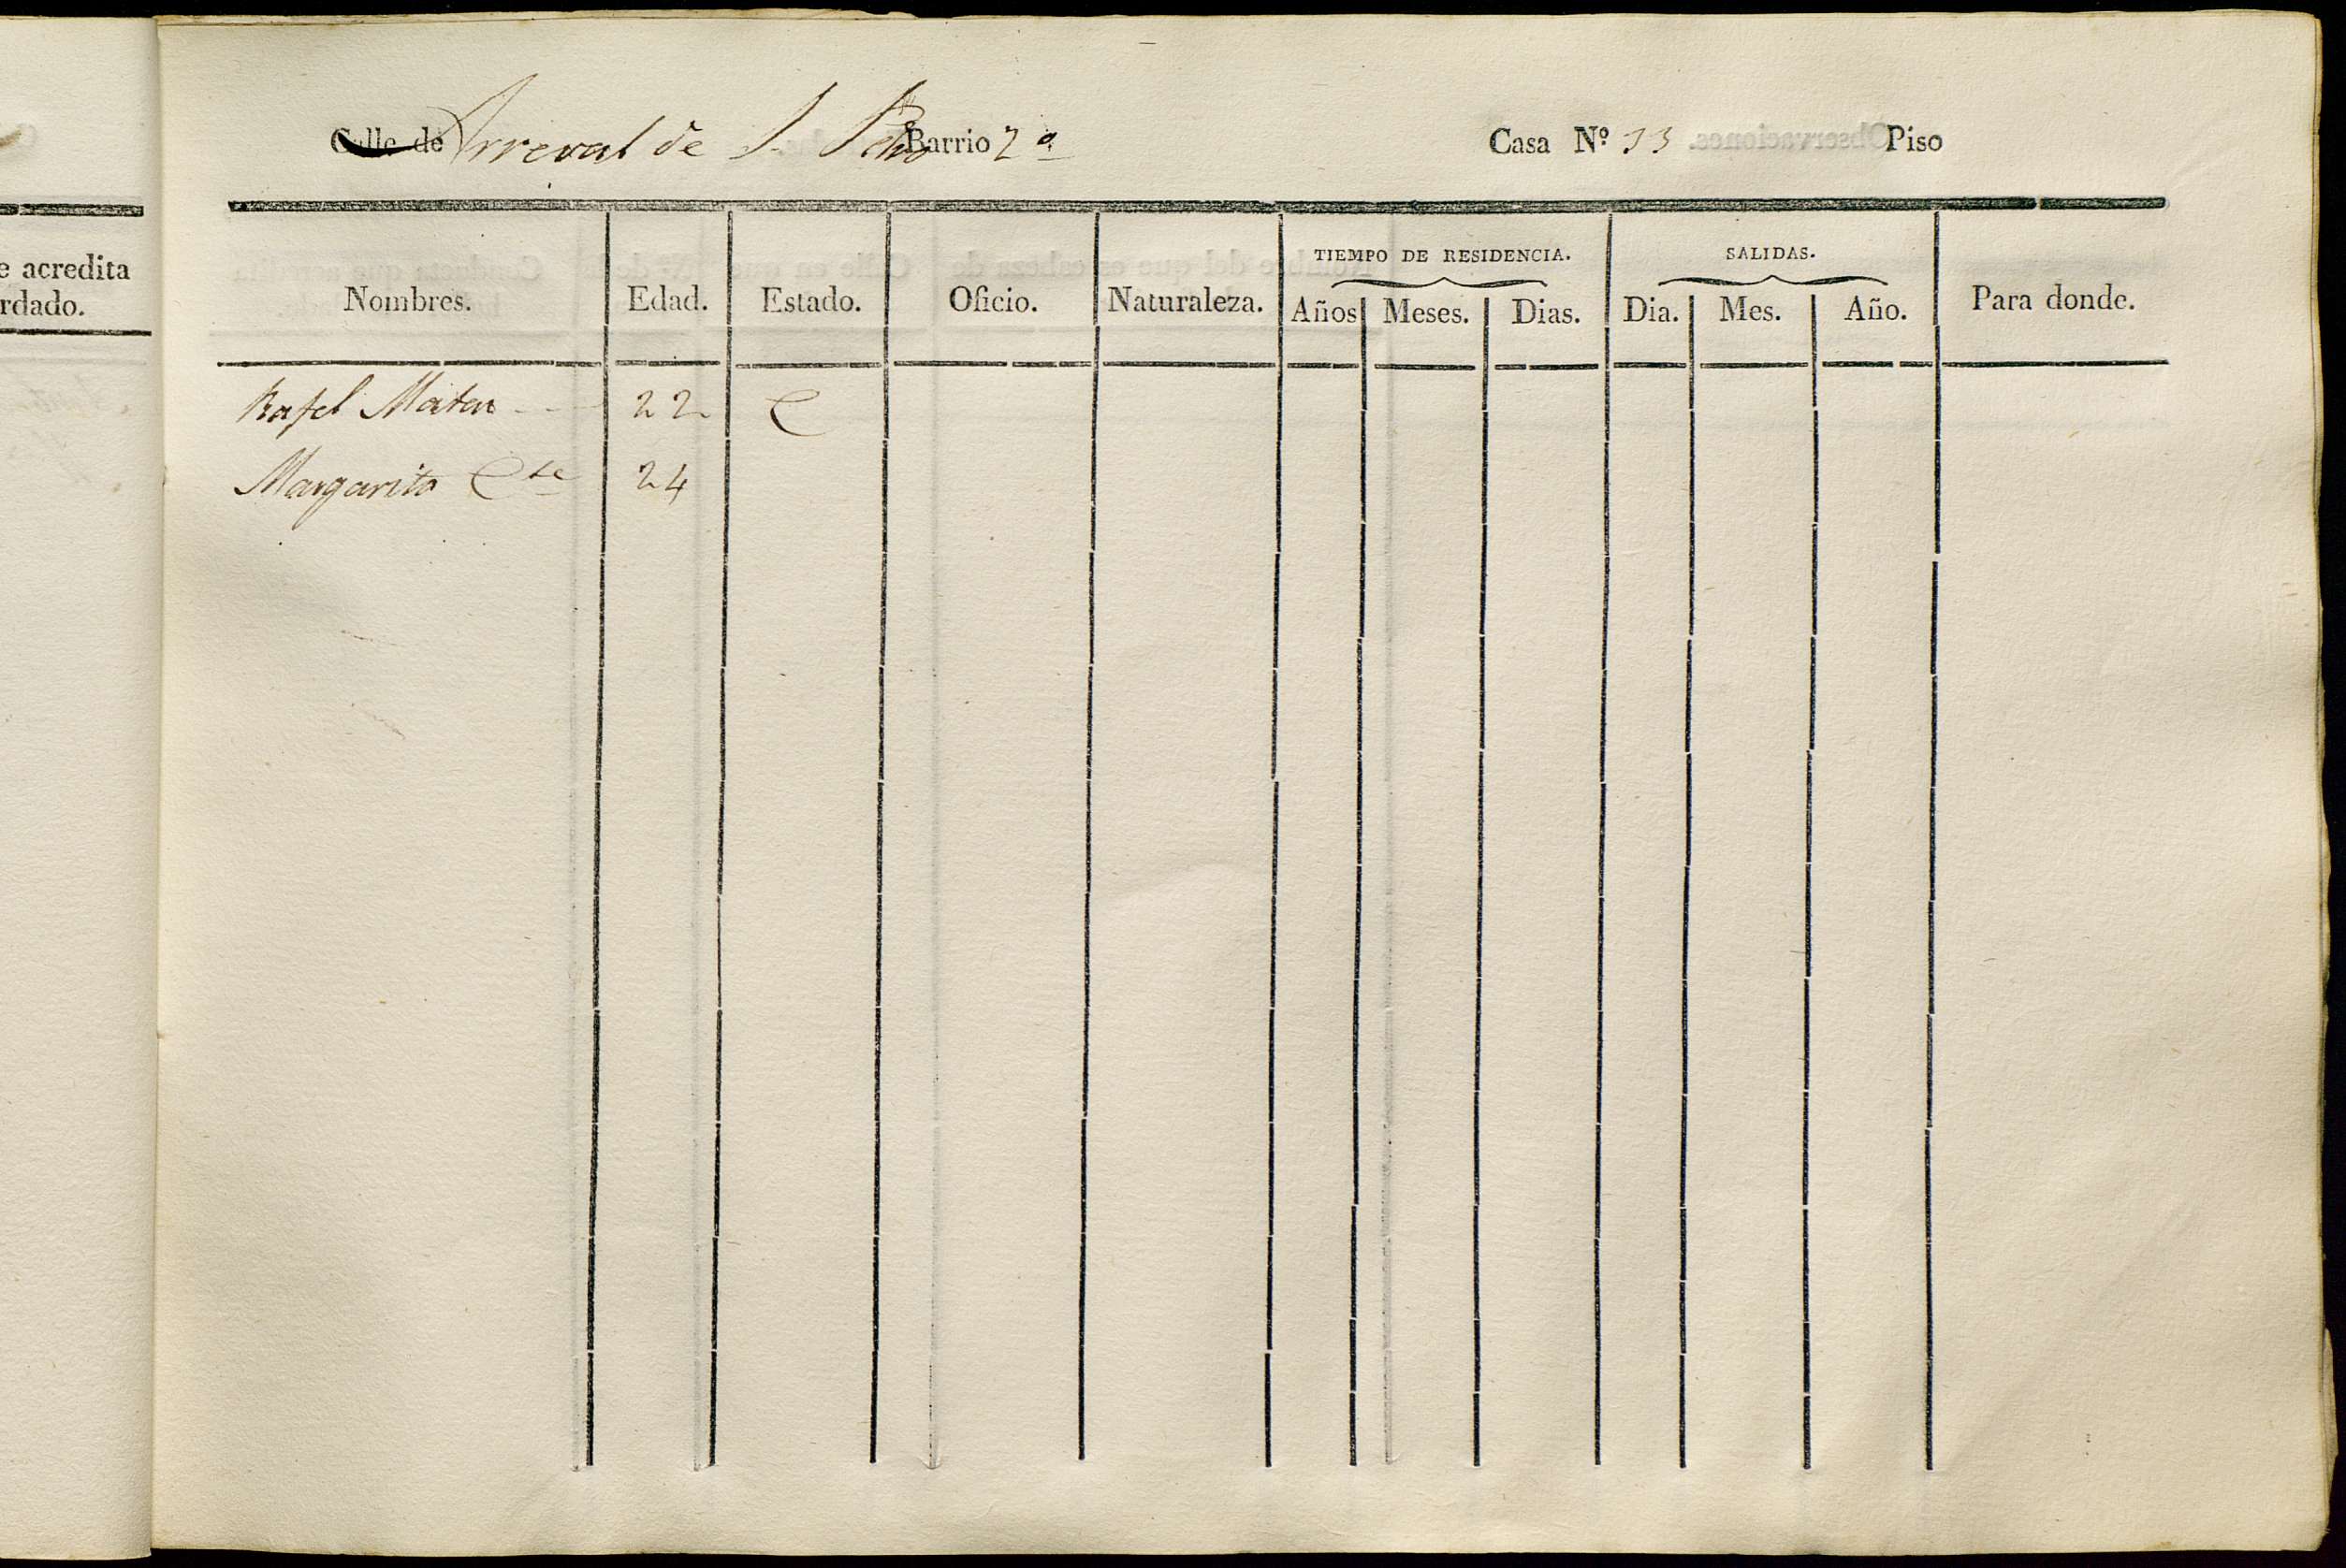 e acredita
rdado.
Calle de Arreval de S. Pedro Barrio 2º Casa Nº 33 Piso
TIEMPO DE RESIDENCIA. SALIDAS.
Nombres. Edad. Estado. Oficio. Naturaleza. Años Meses. Dias. Dia. Mes. Año. Para donde.
Rafel Mateu 22 C
Margarita Cte 24